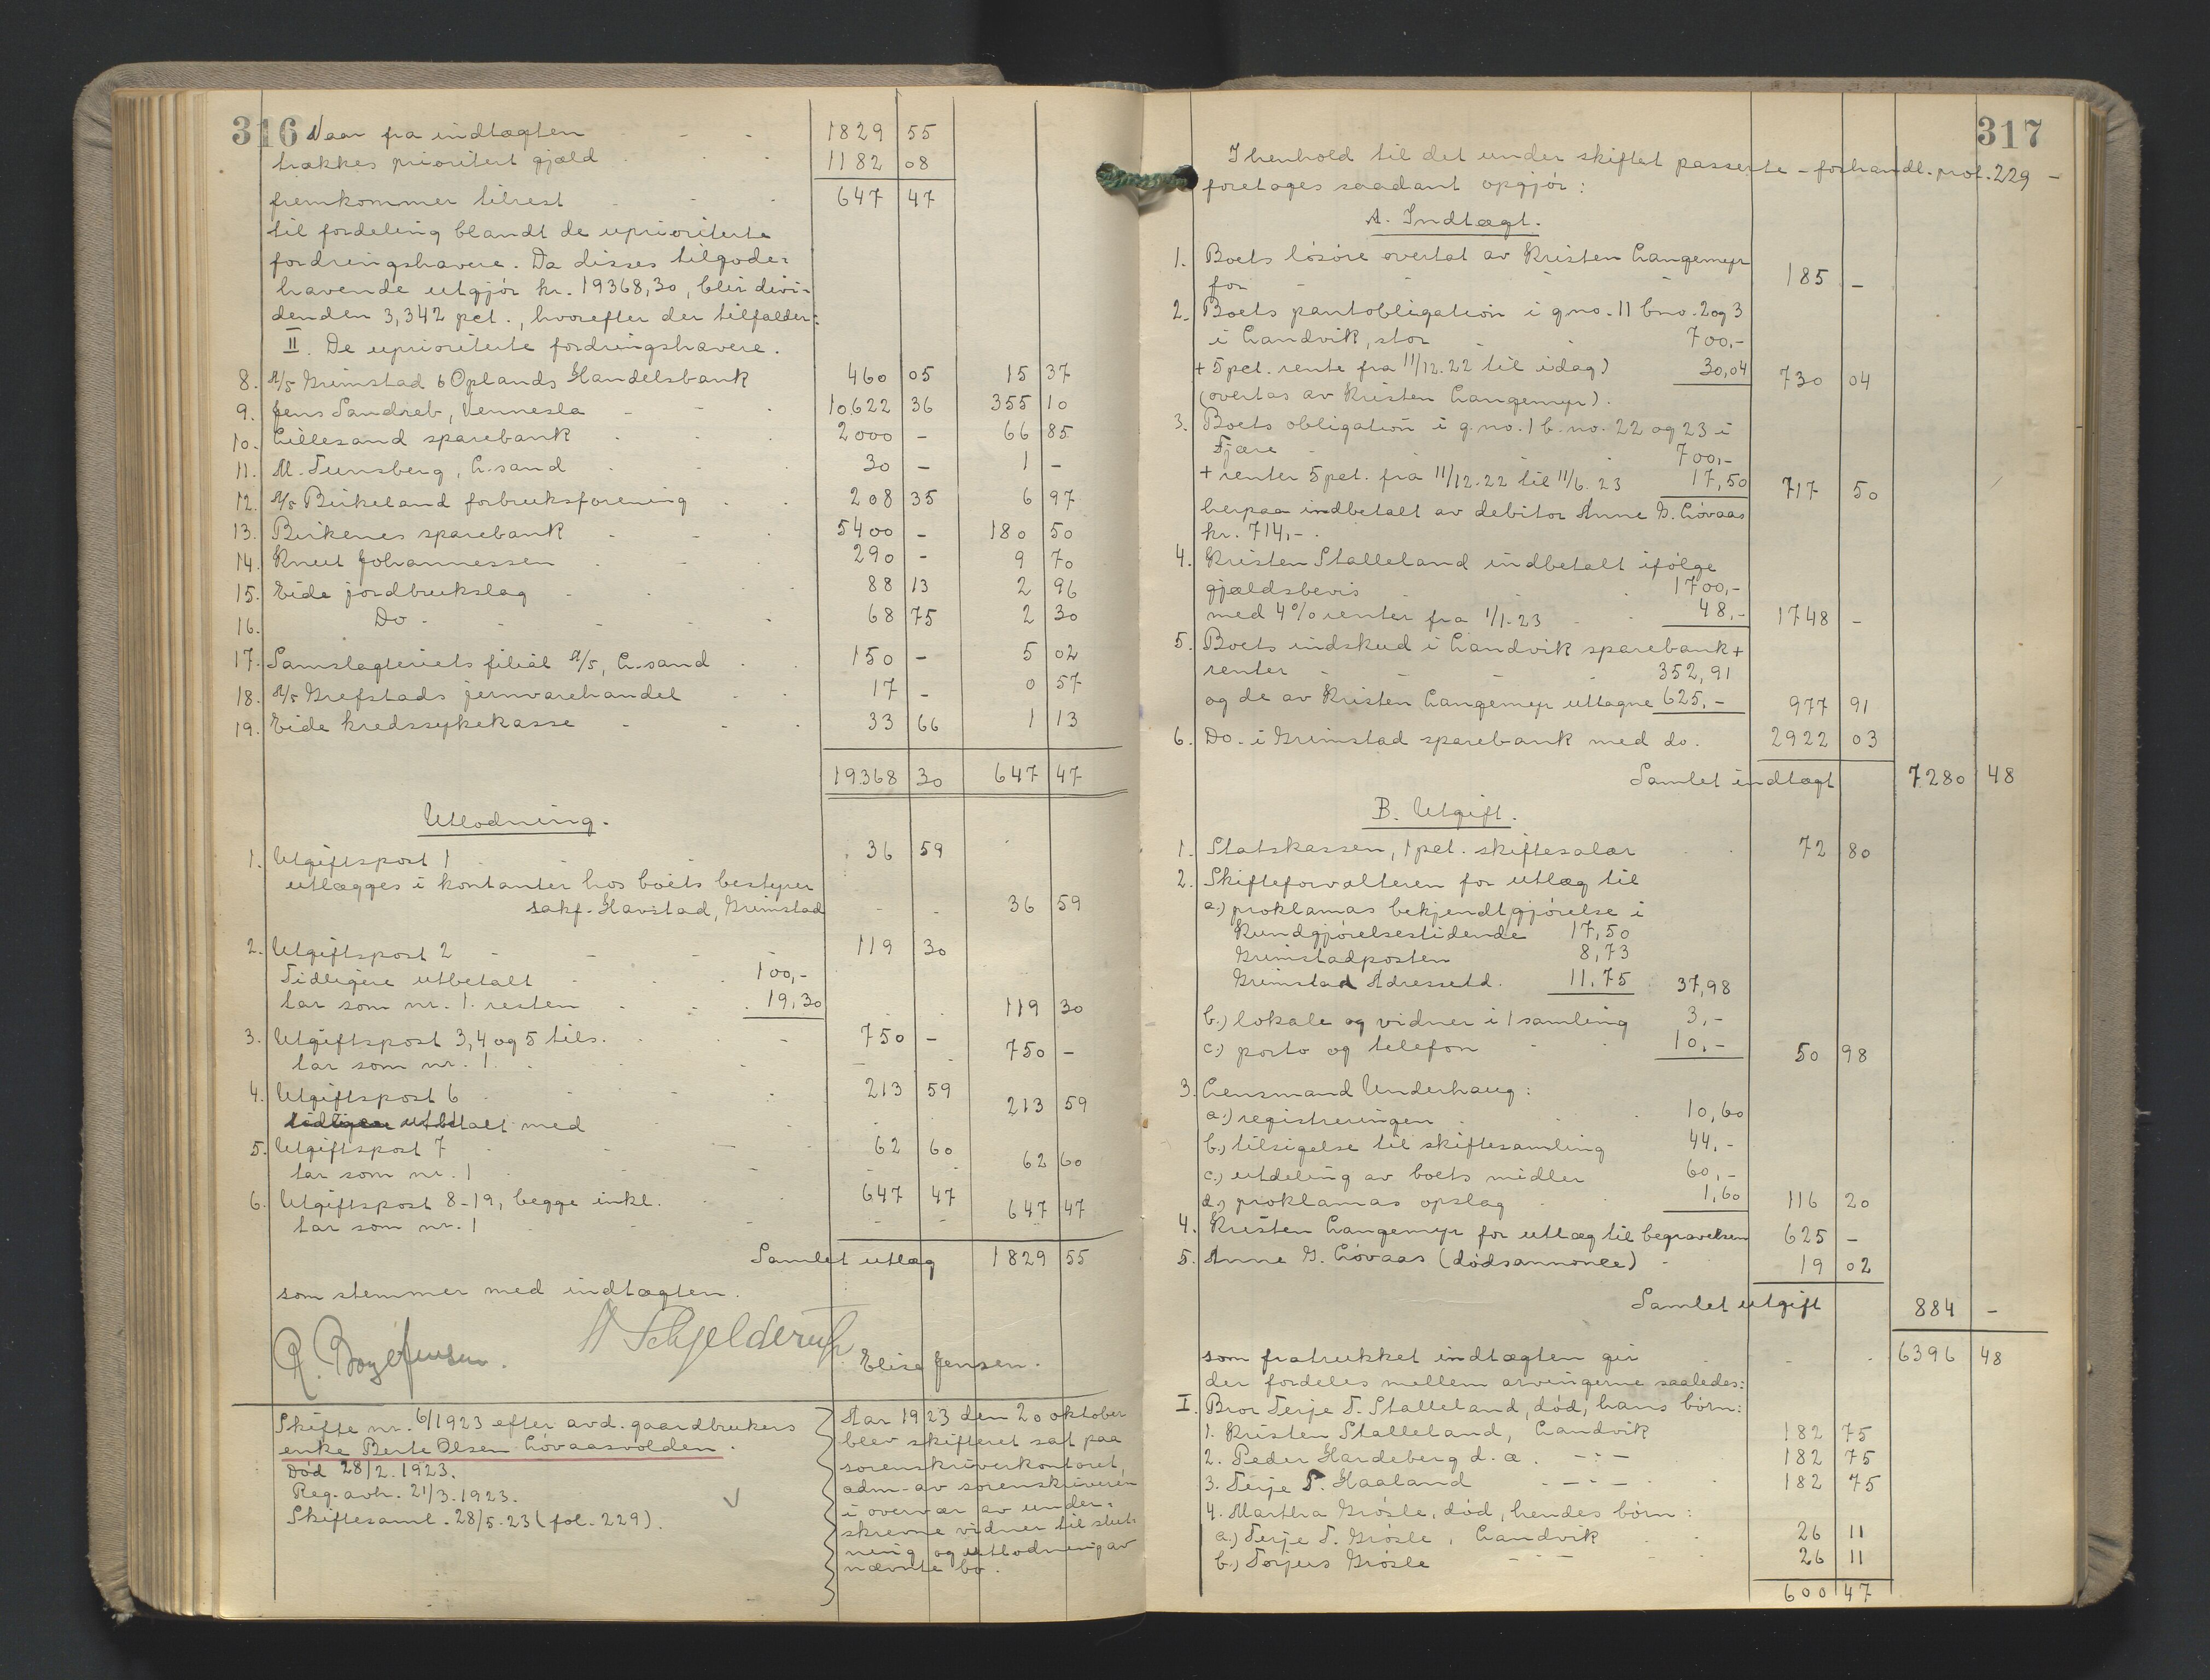 316
Naar fra indtægten - - 1829 55
trækkes prioritert gjæld - - 1182 08
fremkommer tilrest - - 647 47
til fordeling blandt de uprioriterte
fordringshavere. Da disses tilgode-
havende utgjör kr. 19368,30, blir divi-
denden 3,342 pct., hvorefter der tilfalder:
II. De uprioriterte fordringshavere.
8. A/S Grimstad & Oplands Handelsbank 460 05 15 37
9. Jens Sandreb, Vennesla - - 10.622 36 355 10
10. Lillesand sparebank - - 2000 - 66 85
11. M. Tunsberg, L.sand - - 30 - 1 -
12. A/S Birkeland forbruksforening - - 208 35 6 97
13. Birkenes sparebank - - 5400 - 180 50
14. Knut Johannessen - - 290 - 9 70
15. Eide jordbrukslag - - 88 13 2 96
16. Do - - - 68 75 2 30
17. Samslagteriets filial A/S, L.sand - - 150 - 5 02
18. A/S Grefstads jernvarehandel - - 17 - 0 57
19. Eide kredssykekasse - - 33 66 1 13
19368 30 647 47
Utlodning.
1. Utgiftspost 1 - - 36 59
utlægges i kontanter hos boets bestyrer
sakf. Havstad, Grimstad - - 36 59
2. Utgiftspost 2 - - - 119 30
Tidligere utbetalt - - 100,-
tar som nr. 1. resten - - 19,30 119 30
3. Utgiftspost 3, 4 og 5 tils. - - 750 -
tar som nr. 1. - - 750 -
4. Utgiftspost 6 - - 213 59
utbetalt med 213 59
5. Utgiftspost 7 - - 62 60
tar som nr. 1 - - 62 60
6. Utgiftspost 8-19, begge inkl. - - 647 47
tar som nr. 1 - - 647 47
Samlet utlæg 1829 55
som stemmer med indtægten.
R. Boye Jensen. A Schjelderup Elise Jensen.
Skifte nr. 6/1923 efter avd. gaardbrukers
enke Berte Olsen Lövaasvolden.
Död 28/2.1923.
Reg. avh. 21/3.1923.
Skiftesaml. 28/5.23 (fol. 229).
Aar 1923 den 20 oktober
blev skifteret sat paa
sorenskriverkontoret,
adm. av sorenskriveren
i overvær av under-
skrevne vidner til slut-
ning og utlodning av
nævnte bo.
317
I henhold til det under skiftet passerte - forhandl. prot. 229 -
foretages saadant opgjör:
A. Indtægt.
1. Boets lösöre overtat av Kristen Langemyr
for - - - 185 -
2. Boets pantobligation i g.no. 11 b.no. 2 og 3
i Landvik, stor - - 700,-
+ 5 pct. rente fra 11/12.22 til idag) 30,04 730 04
(overtas av Kristen Langemyr).
3. Boets obligation i g.no. 1 b.no. 22 og 23 i
Fjære - - 700,-
+ renter 5 pct. fra 11/12.22 til 11/6.23 17,50 717 50
herpaa indbetalt av debitor Anne G. Lövaas
kr. 714,-.
4. Kristen Stalleland indbetalt ifölge
gjældsbevis - - 1700,-
med 4% renter fra 1/1-23 - - 48,- 1748 -
5. Boets indskud i Landvik sparebank +
renter - - 352,91
og de av Kristen Langemyr uttagne 625,- 977 91
6. Do. i Grimstad sparebank med do. 2922 03
Samlet indtægt 7280 48
B. Utgift.
1. Statskassen, 1 pct. skiftesalær - - 72 80
2. Skifteforvalteren for utlæg til
a.) proklamas bekjendtgjörelse i
Kundgjörelsestidende 17,50
Grimstadposten 8,73
Grimstad Adressetd. 11,75 37,98
b.) lokale og vidner i 1 samling 3,-
c.) porto og telefon - - 10,- 50 98
3. Lensmand Underhaug:
a.) registreringen - - 10,60
b.) tilsigelse til skiftesamling 44,-
c.) utdeling av boets midler 60,-
d.) proklamas opslag - 1,60 116 20
4. Kristen Langemyr for utlæg til begravelsen 625 -
5. Anne G. Lövaas (dödsannonce) - 19 02
Samlet utgift 884 -
som fratrukket indtægten gir - - 6396 48
der fordeles mellem arvingerne saaledes:
I. Bror Terje T. Stalleland, död, hans börn:
1. Kristen Stalleland, Landvik 182 75
2. Peder Hardeberg d.æ. -:- 182 75
3. Terje T. Haaland -:- 182 75
4. Martha Grösle, död, hendes börn:
a.) Terje T. Grösle, Landvik 26 11
b.) Torjus Grösle -:- 26 11
600 47